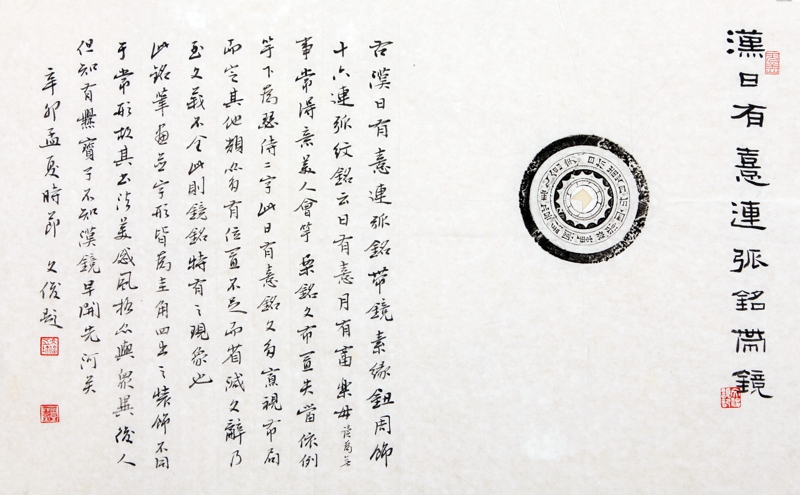 漢日有憙連弧銘帶鏡
右漢日有憙連弧銘帶鏡素緣鈕周飾
十六連弧紋銘云日有憙月有富樂毋
事常得意美人會竽樂銘文布置失當依例
竽下為瑟侍二字此日有憙銘文多寡視布局
而定其他類亦多有位置不足而省減文辭乃
至文義不全此則鏡銘特有之現象也
此銘筆畫並字形皆為圭角四出之裝飾不同
于常形故其書法美感風格亦與眾異後人
但知有爨寶子不知漢鏡早開先河矣
辛卯孟夏時節文俊題